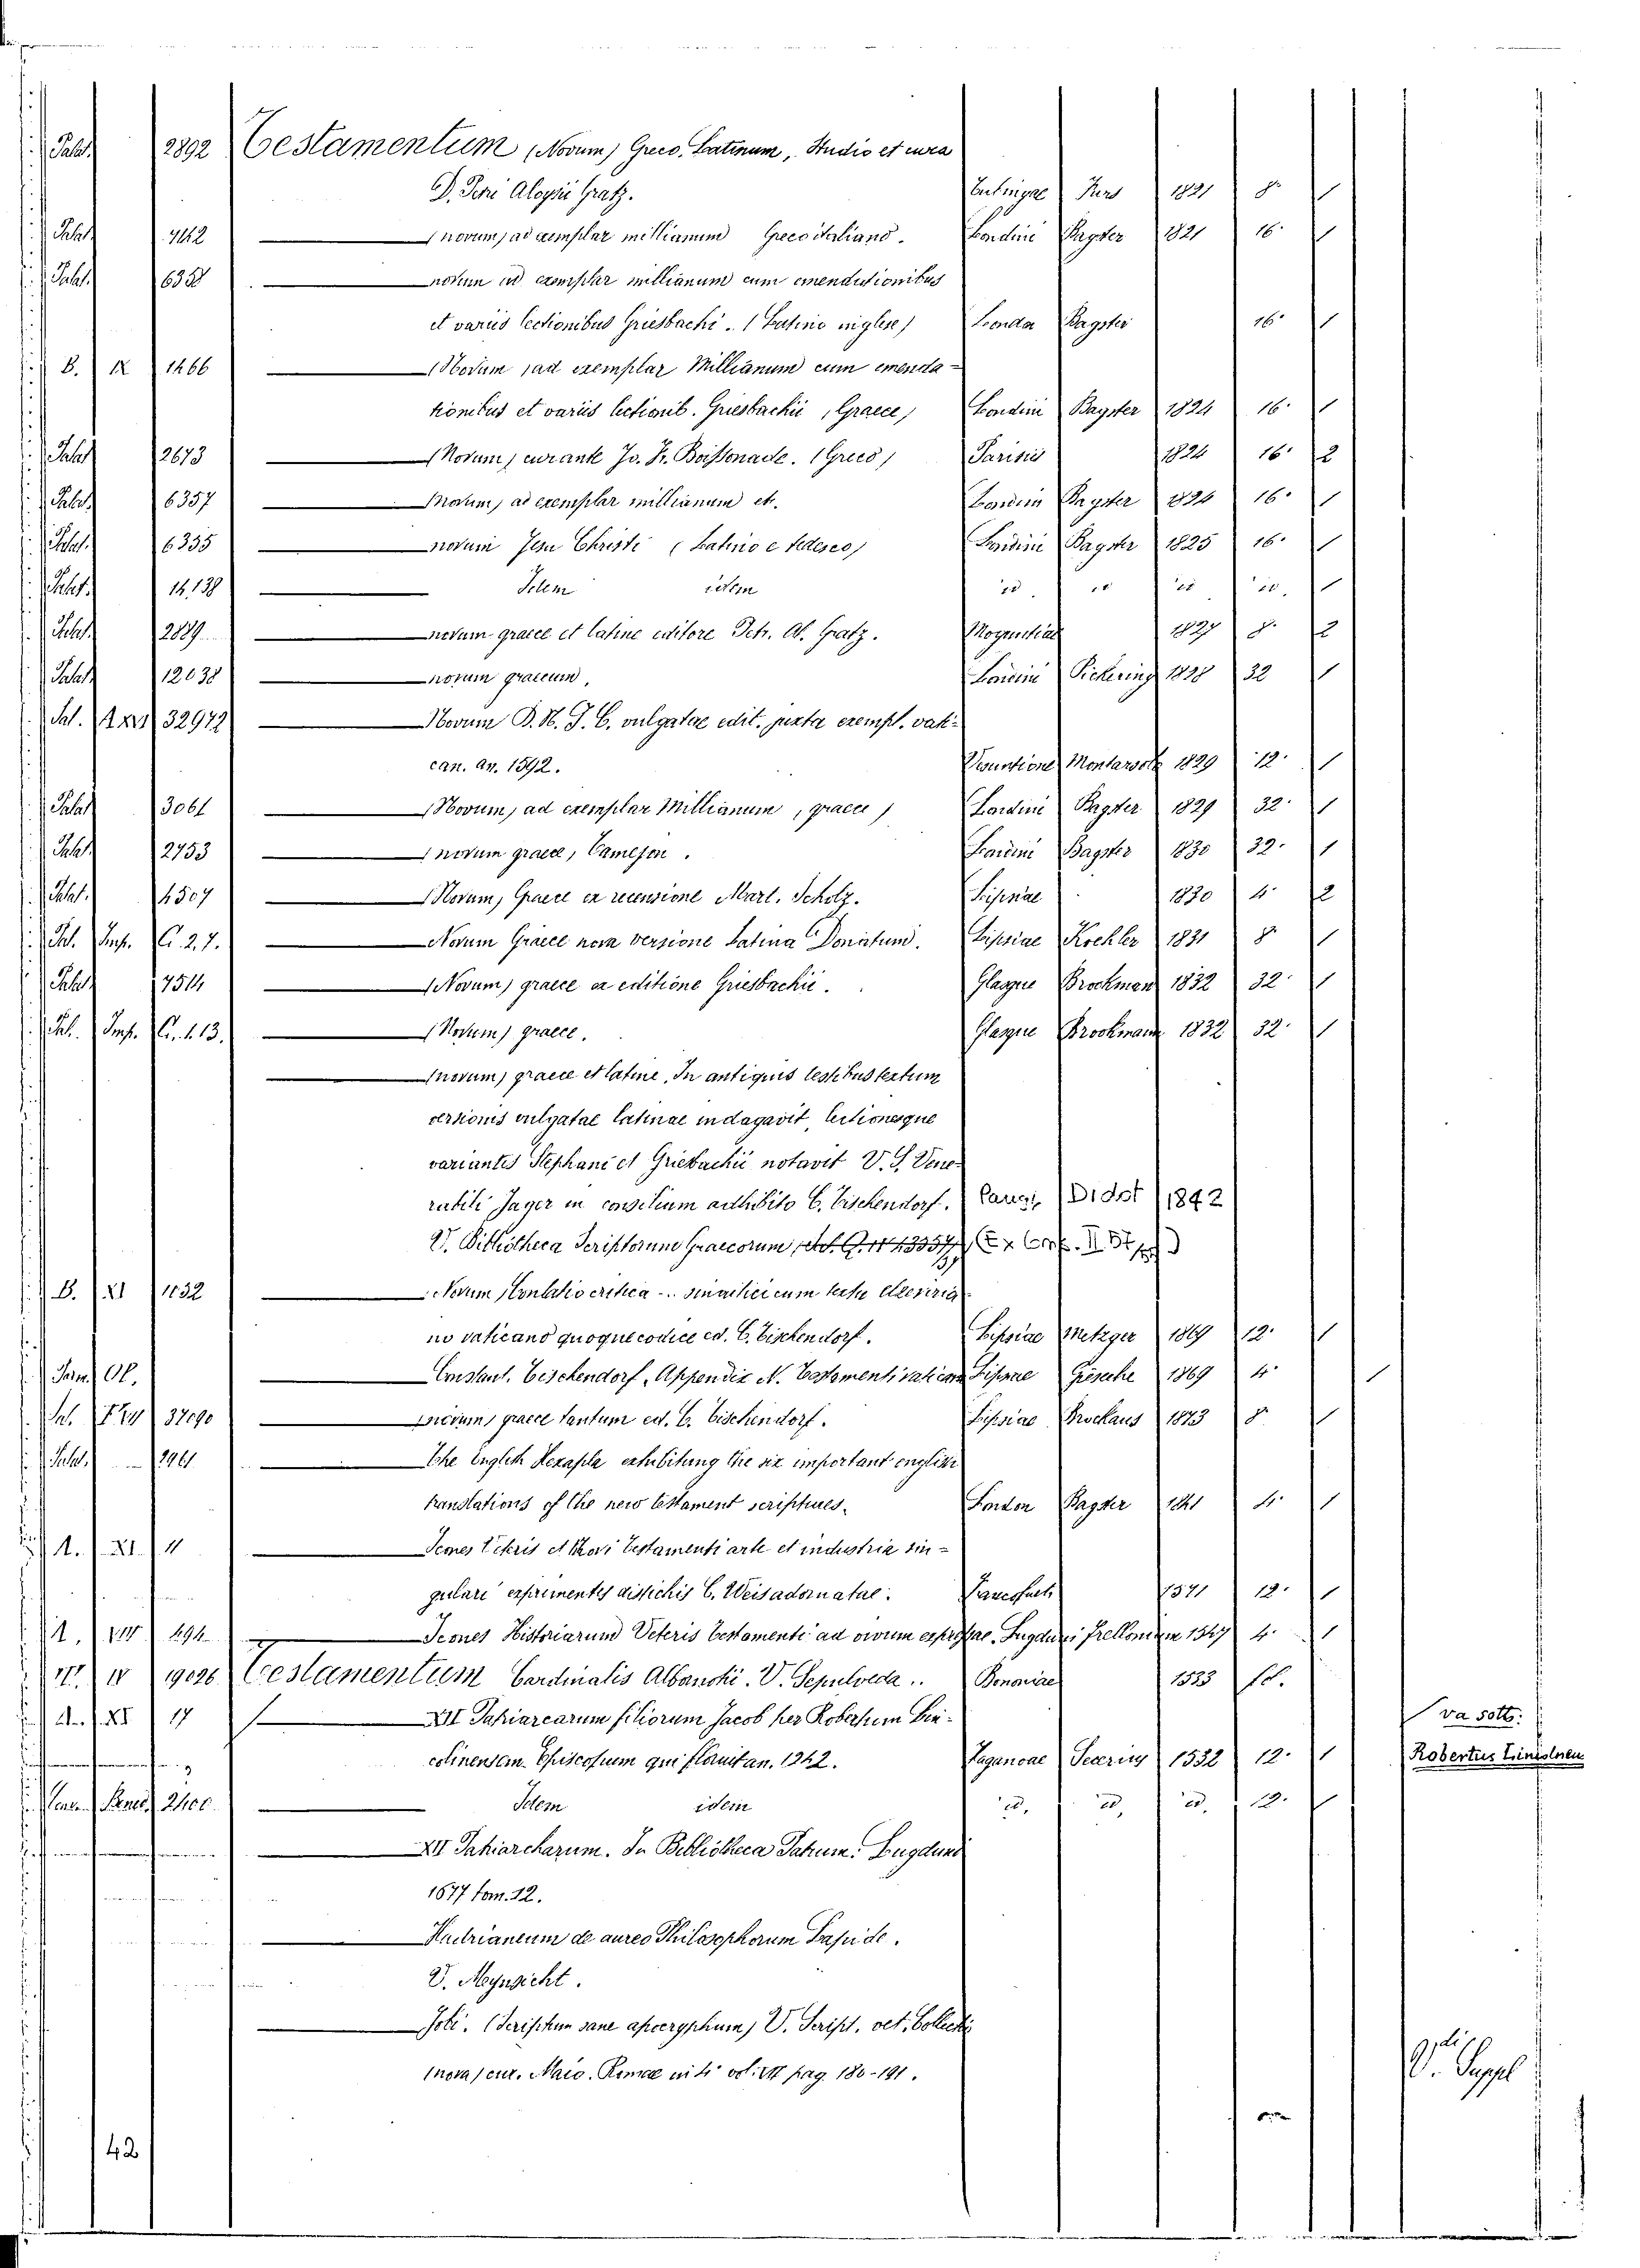 Palat. 2892 Testamentum (Novum) Greco. Latinum, Studio et cura
D. Petri Aloysii Gratz. 1821 8° 1
Palat. 7442 (novum) ad exemplar millianum Greco italiano. Londini Bagster 1821 16° 1
Palat. 6358 novum ad exemplar millianum cum emendationibus
et variis lectionibus Griesbachi. (Latino inglese) Londra Bagster 16° 1
B. IX 1466 (Novum) ad exemplar Millianum cum emenda-
tionibus et variis lectionib. Griesbachii (Graece) Londini Bagster 1824 16° 1
Palat. 2673 (Novum) curante Jo. Fr. Boissonade. (Greco) Parisiis 1824 16° 2
Palat. 6357 (Novum) ad exemplar millianum et. Londini Bagster 1824 16° 1
Palat. 6335 novum Jesu Christi (Latino e tedesco) Londini Bagster 1825 16° 1
Palat. 14.139 Idem idem id. id id id. 1
Palat. 2889 novum graece et latine editore Petr. Al. Gratz. Moguntiae 1827 8° 2
Palat. 12038 novum graecum. Londini Pickering 1828 32 1
Pal. 32972 Novum D. N. J. C. vulgatae edit. juxta exempl. vati-
can. an. 1592. Vesuntione Montarsolo 1829 12° 1
Palat. 3061 (Novum) ad exemplar Millianum (graece) Londini Bagster 1829 32° 1
Palat. 2753 (novum graece, Camesen. Londini Bagster 1830 32° 1
Palat. 4507 (Novum) Graece ex recensione Mart. Scholz. Lipsiae 1830 4° 2
Pal. Imp. C. 2. 7. Novum Graece nova versione Latina Donatum. Lipsiae Kochler 1831 8° 1
Palat. 7514 (Novum) graece ex editione Griesbachii. Glaguae Brockman 1832 32° 1
Pal. Imp. C. 1. 13. (Novum) graece. Glaguae Brockmann 1832 32° 1
(novum) graece et latine, In antiquis testibus textum
versionis vulgatae latinae indagavit, lectionesque
variantes Stephani et Griebachii notavit V. S. Vene-
rabili Jager in consilium adhibito C. Tischendorf. Parigi, Didot 1842
V. Bibliotheca Scriptorum Graecorum
B. XI 1132 Novum
no vaticano quoque codice ed. C. Tischendorf. Lipsiae Metzger 1869 12° 1
Constant. Tischendorf, Appendix N. Testamenti vaticani Lipsiae Giesecke 1869 4° 1
Pal. 37090 (novum) graece tantum ed. C. Tischendorf. Lipsiae Brockaus 1873 8° 1
Palat. The Englich Hexapla exhibiting the six important english
translations of the new testament scriptures. London Bagster 1841 4° 1
A. XI. 11 Icones Veteris et Novi Testamenti arte et industria sin-
gulari exprimentes distichis C. Weis adornatae. Francofurti 1571 12° 1
A. XIV 494 Icones Historiarum Veteris Testamenti ad vivum expressae. Lugduni Frellonium 1547 4° 1
IV 19026 Testamentum Cardinalis Albanoki. V. Sepulveda.. Bononiae 1533 fol.
A. XI 17 XII Patriarcarum filiorum Jacob per Robertum Lin-
colinensem Episcopum qui floruit an. 1242. Haganoae Secerius 1532 12° 1
va sott.
Robertus Linislnen
2400 Idem idem id. id, id. 12. 1
XII Patriarcharum. In Bibliotheca Patrum. Lugduni
1677 tom. 12.
Hadrianeum de aureo Philosophorum Lapide.
V. Meynsicht.
Jobi. (Scriptum sane apocryphum) V. Script. vet. Collectio
(nova) cur. Maio. Romae in 4° vol. VII pag. 180-191.
V. Suppl
42